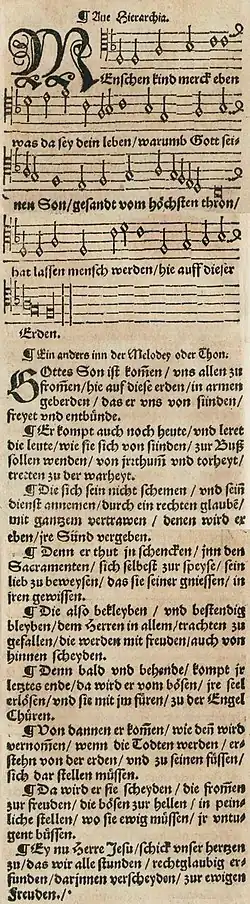 ¶ Aue Hierarchia.
MEnschen kind merck eben
was da sey dein leben/warumb Gott seis
nen Son/gesandt vom höchsten thron/
hat lassen mensch werden/hie auff dieser
Erden.
¶ Ein anders inn der Melodey oder Thon:
GOttes Son ist kom̃en/ vns allen zu
from̃en/hie auf diese erden/in armen
geberden / das er vns von sünden/
freyet vnd entbünde.
¶ Er kompt auch noch heute/vnd leret
die leute/wie sie sich von sünden/zur Buß
sollen wenden/von jrrthum̃ vnd torheyt/
tretten zu der warheyt.
¶ Die sich sein nicht schemen / vnd sein̄
dienst annemen/durch ein rechten glaubē/
mit gantzem vertrawen / denen wird er
eben/jre Sünd vergeben.
¶ Denn er thut jn schencken/ jnn den
Sacramenten/ sich selbest zur speyse/ sein
lieb zu beweysen/das sie seiner gniessen/ in
jren gewissen.
¶ Die also bekleyben / vnd bestendig
bleyben/dem Herren in allem/trachten zu
gefallen/die werden mit freuden/auch von
hinnen scheyden.
¶ Denn bald vnd behende/ kompt jr
letztes ende/da wird er vom bösen/ jre seel
erlösen/vnd sie mit jm füren/zu der Engel
Chüren.
¶ Von dannen er kom̃en/wie den̄ wird
vernom̃en/ wenn die Todten werden / er-
stehn von der erden/ vnd zu seinen füssen/
sich dar stellen müssen.
¶ Da wird er sie scheyden/ die from̃en
zur freuden/ die bösen zur hellen / in pein-
liche stellen/ wo sie ewig müssen/ jr vntu-
gent büssen.
¶ Ey nu Herre Jesu/schick vnser hertzen
zu/das wir alle stunden / rechtglaubig er-
funden/darjnnen verscheyden/zur ewigen
Freuden./·